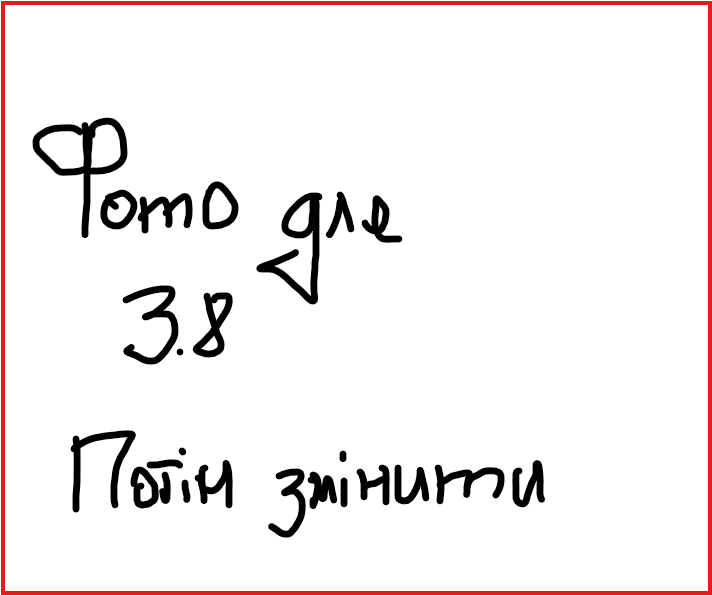 Фото для
3.8
Потім змінити